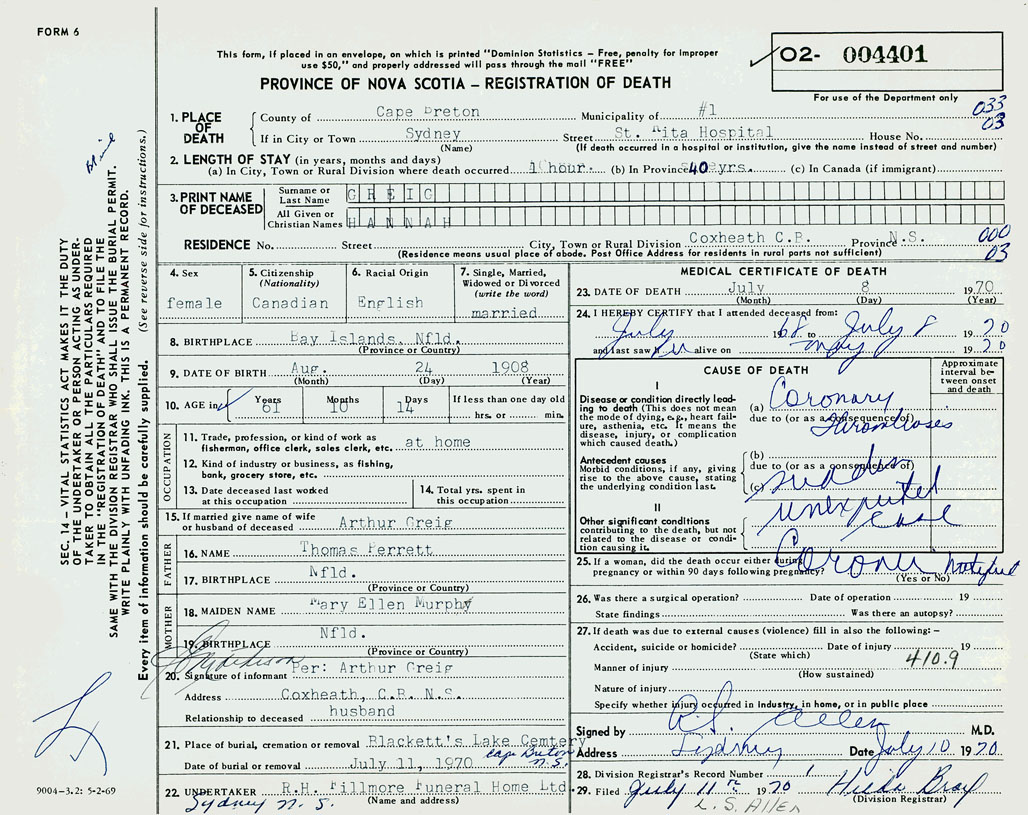 FORM 6
This form, if placed in an envelope, on which is printed "Dominion Statistics – Free, penalty for improper
use $50," and properly addressed will pass through the mail "FREE"
O2- 004401
PROVINCE OF NOVA SCOTIA – REGISTRATION OF DEATH
For use of the Department only
1. PLACE OF DEATH
County of Cape Breton Municipality of #1 033
If in City or Town Sydney Street St. Rita Hospital House No. 03
(Name) (If death occurred in a hospital or institution, give the name instead of street and number)
2. LENGTH OF STAY (in years, months and days)
(a) In City, Town or Rural Division where death occurred 1 hour. (b) In Province 40 yrs. (c) In Canada (if immigrant)
3. PRINT NAME OF DECEASED
Surname or Last Name GREIG
All Given or Christian Names HANNAH
RESIDENCE No. Street City, Town or Rural Division Coxheath C.B. Province N.S. 000
(Residence means usual place of abode. Post Office Address for residents in rural parts not sufficient) 03
4. Sex female
5. Citizenship (Nationality) Canadian
6. Racial Origin English
7. Single, Married, Widowed or Divorced (write the word) married
8. BIRTHPLACE Bay Islands, Nfld.
(Province or Country)
9. DATE OF BIRTH Aug. 24 1908
(Month) (Day) (Year)
10. AGE in Years 61 Months 10 Days 14 If less than one day old
hrs. or min.
OCCUPATION
11. Trade, profession, or kind of work as
fisherman, office clerk, sales clerk, etc. at home
12. Kind of industry or business, as fishing,
bank, grocery store, etc.
13. Date deceased last worked
at this occupation
14. Total yrs. spent in
this occupation
15. If married give name of wife
or husband of deceased Arthur Greig
FATHER
16. NAME Thomas Perrett
17. BIRTHPLACE Nfld.
(Province or Country)
MOTHER
18. MAIDEN NAME Mary Ellen Murphy
19. BIRTHPLACE Nfld.
(Province or Country)
20. Signature of informant Per: Arthur Greig
Address Coxheath, C.B. N.S.
Relationship to deceased husband
21. Place of burial, cremation or removal Blackett's Lake Cemtery
Cape Breton N.S.
Date of burial or removal July 11, 1970
22. UNDERTAKER R.H. Fillmore Funeral Home Ltd.
Sydney N.S. (Name and address)
MEDICAL CERTIFICATE OF DEATH
23. DATE OF DEATH July 8 1970
(Month) (Day) (Year)
24. I HEREBY CERTIFY that I attended deceased from:
July 1968 to July 8 1970
and last saw her alive on May 1970
CAUSE OF DEATH
Approximate interval between onset and death
I
Disease or condition directly leading to death (This does not mean the mode of dying, e.g., heart failure, asthenia, etc. It means the disease, injury, or complication which caused death.)
(a) Coronary
due to (or as a consequence of)
Thromboses
Antecedent causes
Morbid conditions, if any, giving rise to the above cause, stating the underlying condition last.
(b)
due to (or as a consequence of)
(c) sudden
II
unexpected
Other significant conditions contributing to the death, but not related to the disease or condition causing it.
case
25. If a woman, did the death occur either during
pregnancy or within 90 days following pregnancy?
(Yes or No)
Coroner notified
26. Was there a surgical operation? Date of operation 19
State findings Was there an autopsy?
27. If death was due to external causes (violence) fill in also the following: –
Accident, suicide or homicide? Date of injury 19
(State which) 410.9
Manner of injury
(How sustained)
Nature of injury
Specify whether injury occurred in industry, in home, or in public place
Signed by A.S. Allen M.D.
Address Sydney Date July 10 1970
28. Division Registrar's Record Number
29. Filed July 11th 1970 Hilda Bray
L. S. Allen (Division Registrar)
SEC. 14 – VITAL STATISTICS ACT MAKES IT THE DUTY
OF THE UNDERTAKER OR PERSON ACTING AS UNDER-
TAKER TO OBTAIN ALL THE PARTICULARS REQUIRED
IN THE "REGISTRATION OF DEATH" AND TO FILE THE
SAME WITH THE DIVISION REGISTRAR WHO SHALL ISSUE THE BURIAL PERMIT.
WRITE PLAINLY WITH UNFADING INK. THIS IS A PERMANENT RECORD.
Every item of information should be carefully supplied. (See reverse side for instructions.)
9004-3.2: 5-2-69